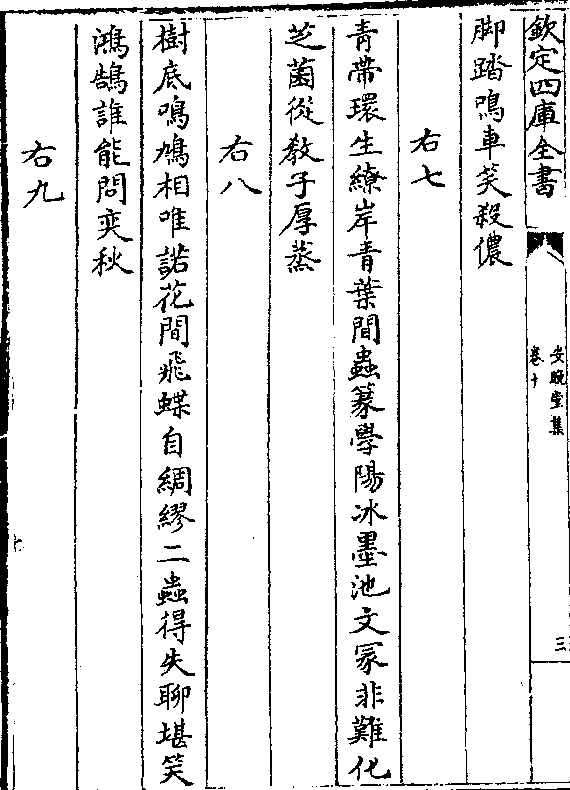 欽定四庫全書
安晚堂集
卷十
三
脚踏鳴車笑殺儂
右七
青帶環生繚岸青葉間蟲篆學陽冰墨池文冢非難化
芝菌從教子厚蒸
右八
樹底鳴鳩相唯諾花間飛蝶自綢繆二蟲得失聊堪笑
鴻鵠誰能問奕秋
右九